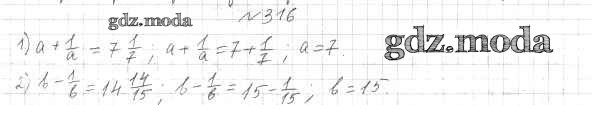 №316
gdz.moda
1) a + 1/a = 7 1/7; a + 1/a = 7 + 1/7; a = 7.
gdz.moda
2) b - 1/b = 14 14/15; b - 1/b = 15 - 1/15; b = 15.